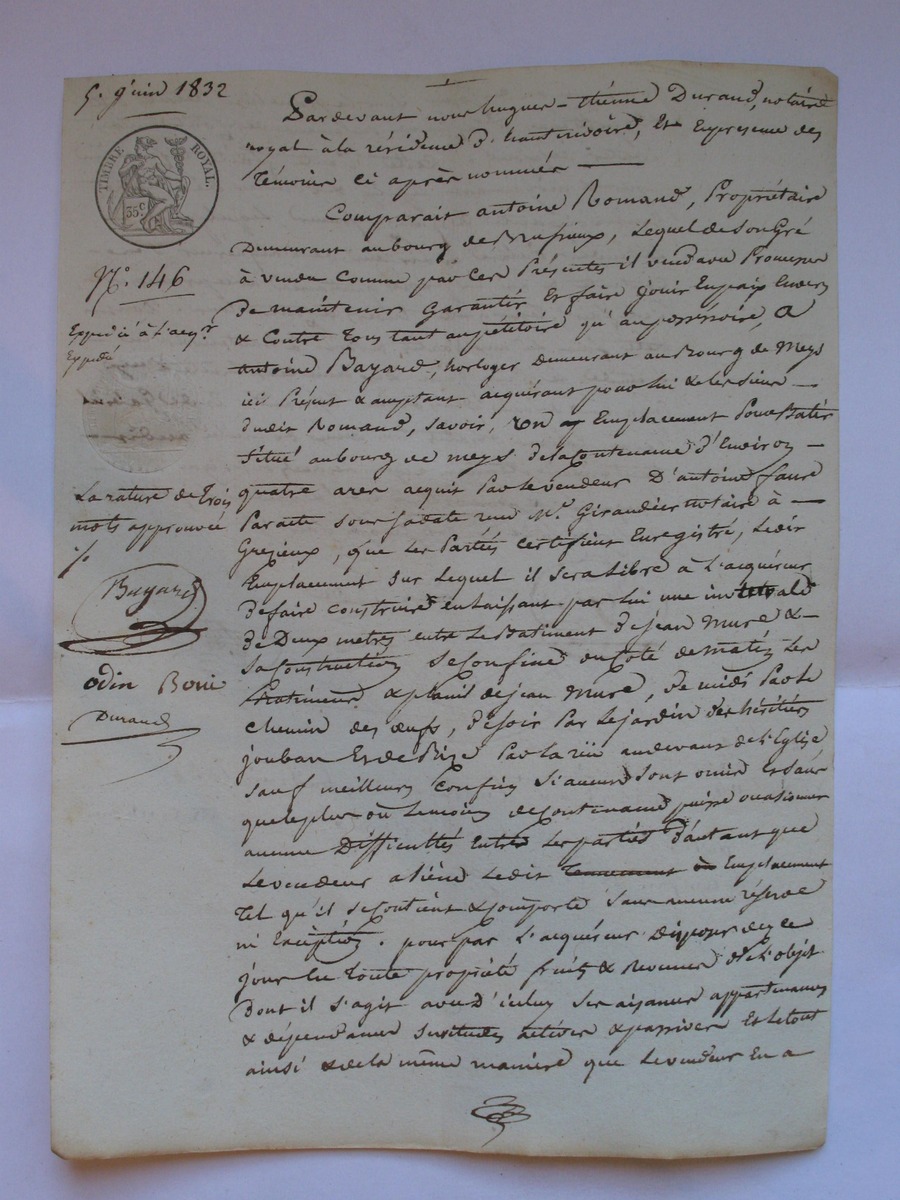 5. Juin 1832
TIMBRE ROYAL.
35 C
N.° 146
Expédié à l'acq.r
Expédié
La rature de trois
mots approuvée
Bayard
odin Borie
Durand
Pardevant nous hugues-thénne Durand, notaire
royal à la résidence d'hauterivoire, Et En présence des
témoins ci après nommés
Comparait antoine Romand, Propriétaire
Demeurant au bourg de Brussieux, Lequel de Son Gré
à vendu Comme par Ces Présentes il vend avec Promesse
de maintenir Garantir Et faire jouir En paix Envers
& Contre Tous tant au pétitoire qu'au possessoire, A
antoine Bayard, horloger Demeurant au Bourg de Meys
ici Présent & acceptant acquérant pour lui & les siens
dudit Romand, Savoir, un Emplacement Pour Batir
Situé au bourg de meys de la Contenance d'Environ
quatre ares acquis Par le vendeur D'antoine faure
Par acte Sous Sa date reçu M.e Giraudier notaire à
Grezieux, que Les Parties Certifient Enregistré, Ledit
Emplacement Sur Lequel il Sera Libre à L'acquéreur
de faire Construire en Laissant par Lui une intervale
de Deux metres entre Le Batiment de jean Mure &
Sa Construction Se Confine du Coté de matin Les
Batiment & plani de jean Mure, de midi Par le
Chemin des œufs, de Soir Par Le jardin des héritiers
jouban Et de Bize Par La rüe au devant de l'Eglise
Sauf meilleurs Confins Si aucuns Sont omis Et Sans
que le plus ou Le moins de Contenance puisse occasionner
aucune Difficultés Entre Les parties d'autant que
Le vendeur aliène Ledit Tennement ou Emplacement
Tel qu'il Se Contient & Comporte Sans aucune réserve
ni Exception. pour par L'acquéreur disposer dez ce
jour En Toute propriété fruits & Revenus de L'objet
Dont il S'agit avec D'iceluy Ses aisances appartenances
& dépendances Servitudes actives & passives Et Le tout
ainsi & de la même maniere que Le vendeur En a